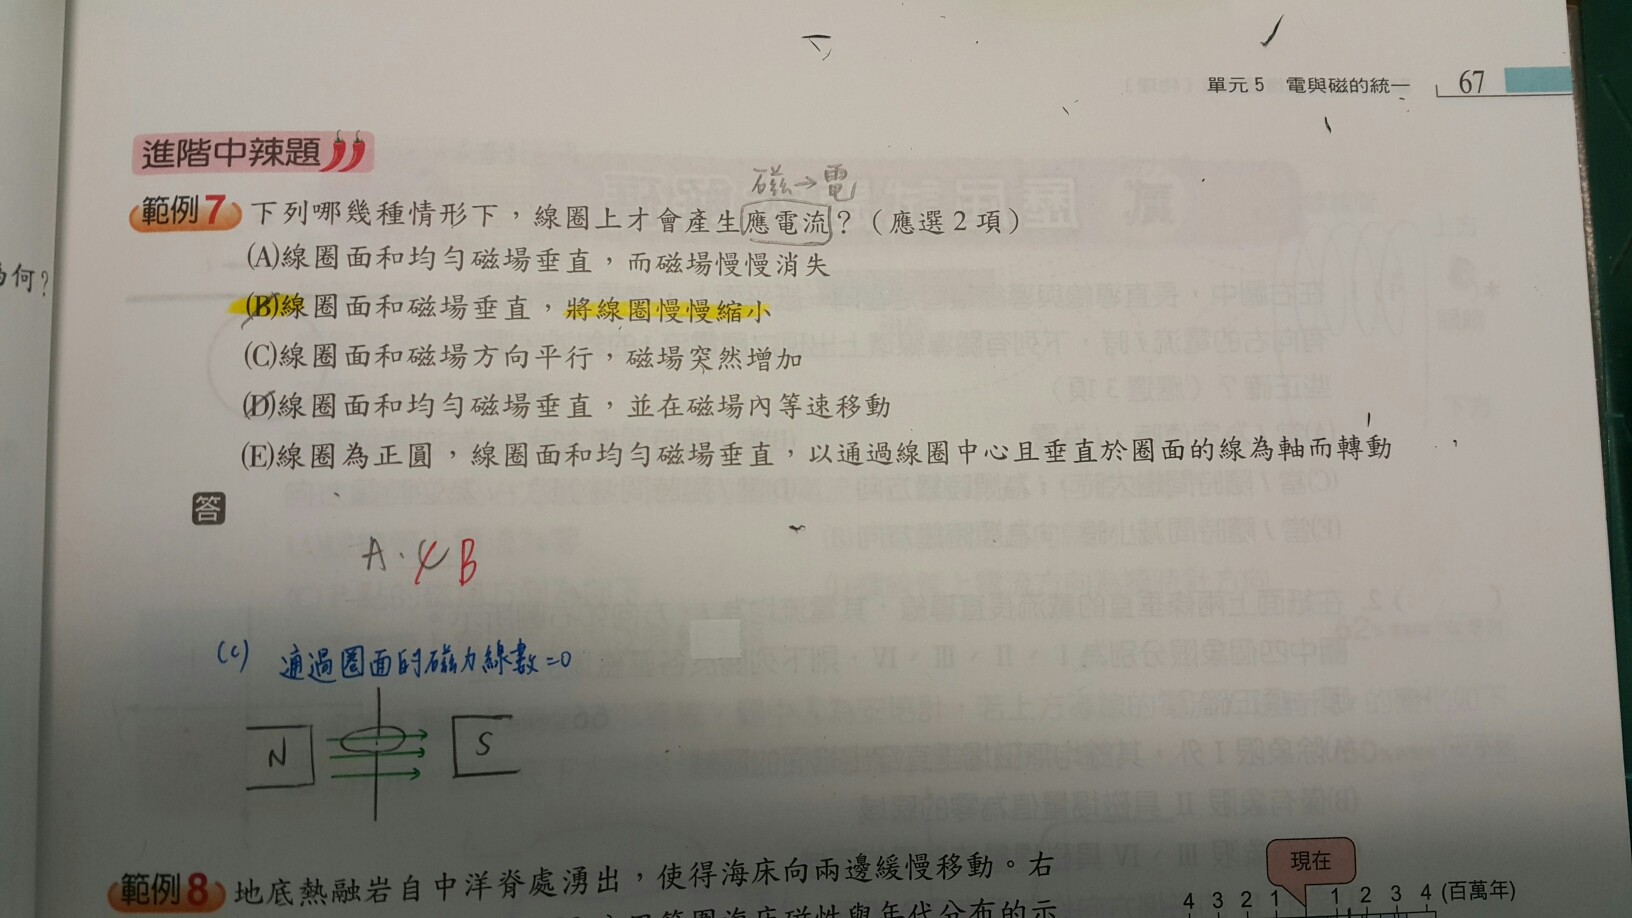 單元5 電與磁的統一 67
進階中辣題
磁→電
範例7 下列哪幾種情形下，線圈上才會產生應電流？（應選2項）
(A)線圈面和均勻磁場垂直，而磁場慢慢消失
(B)線圈面和磁場垂直，將線圈慢慢縮小
為何？
(C)線圈面和磁場方向平行，磁場突然增加
(D)線圈面和均勻磁場垂直，並在磁場內等速移動
(E)線圈為正圓，線圈面和均勻磁場垂直，以通過線圈中心且垂直於圈面的線為軸而轉動
答
A．C B
(c) 通過圈面的磁力線數=0
N S
範例8 地底熱融岩自中洋脊處湧出，使得海床向兩邊緩慢移動。右
現在
4 3 2 1 1 2 3 4 (百萬年)